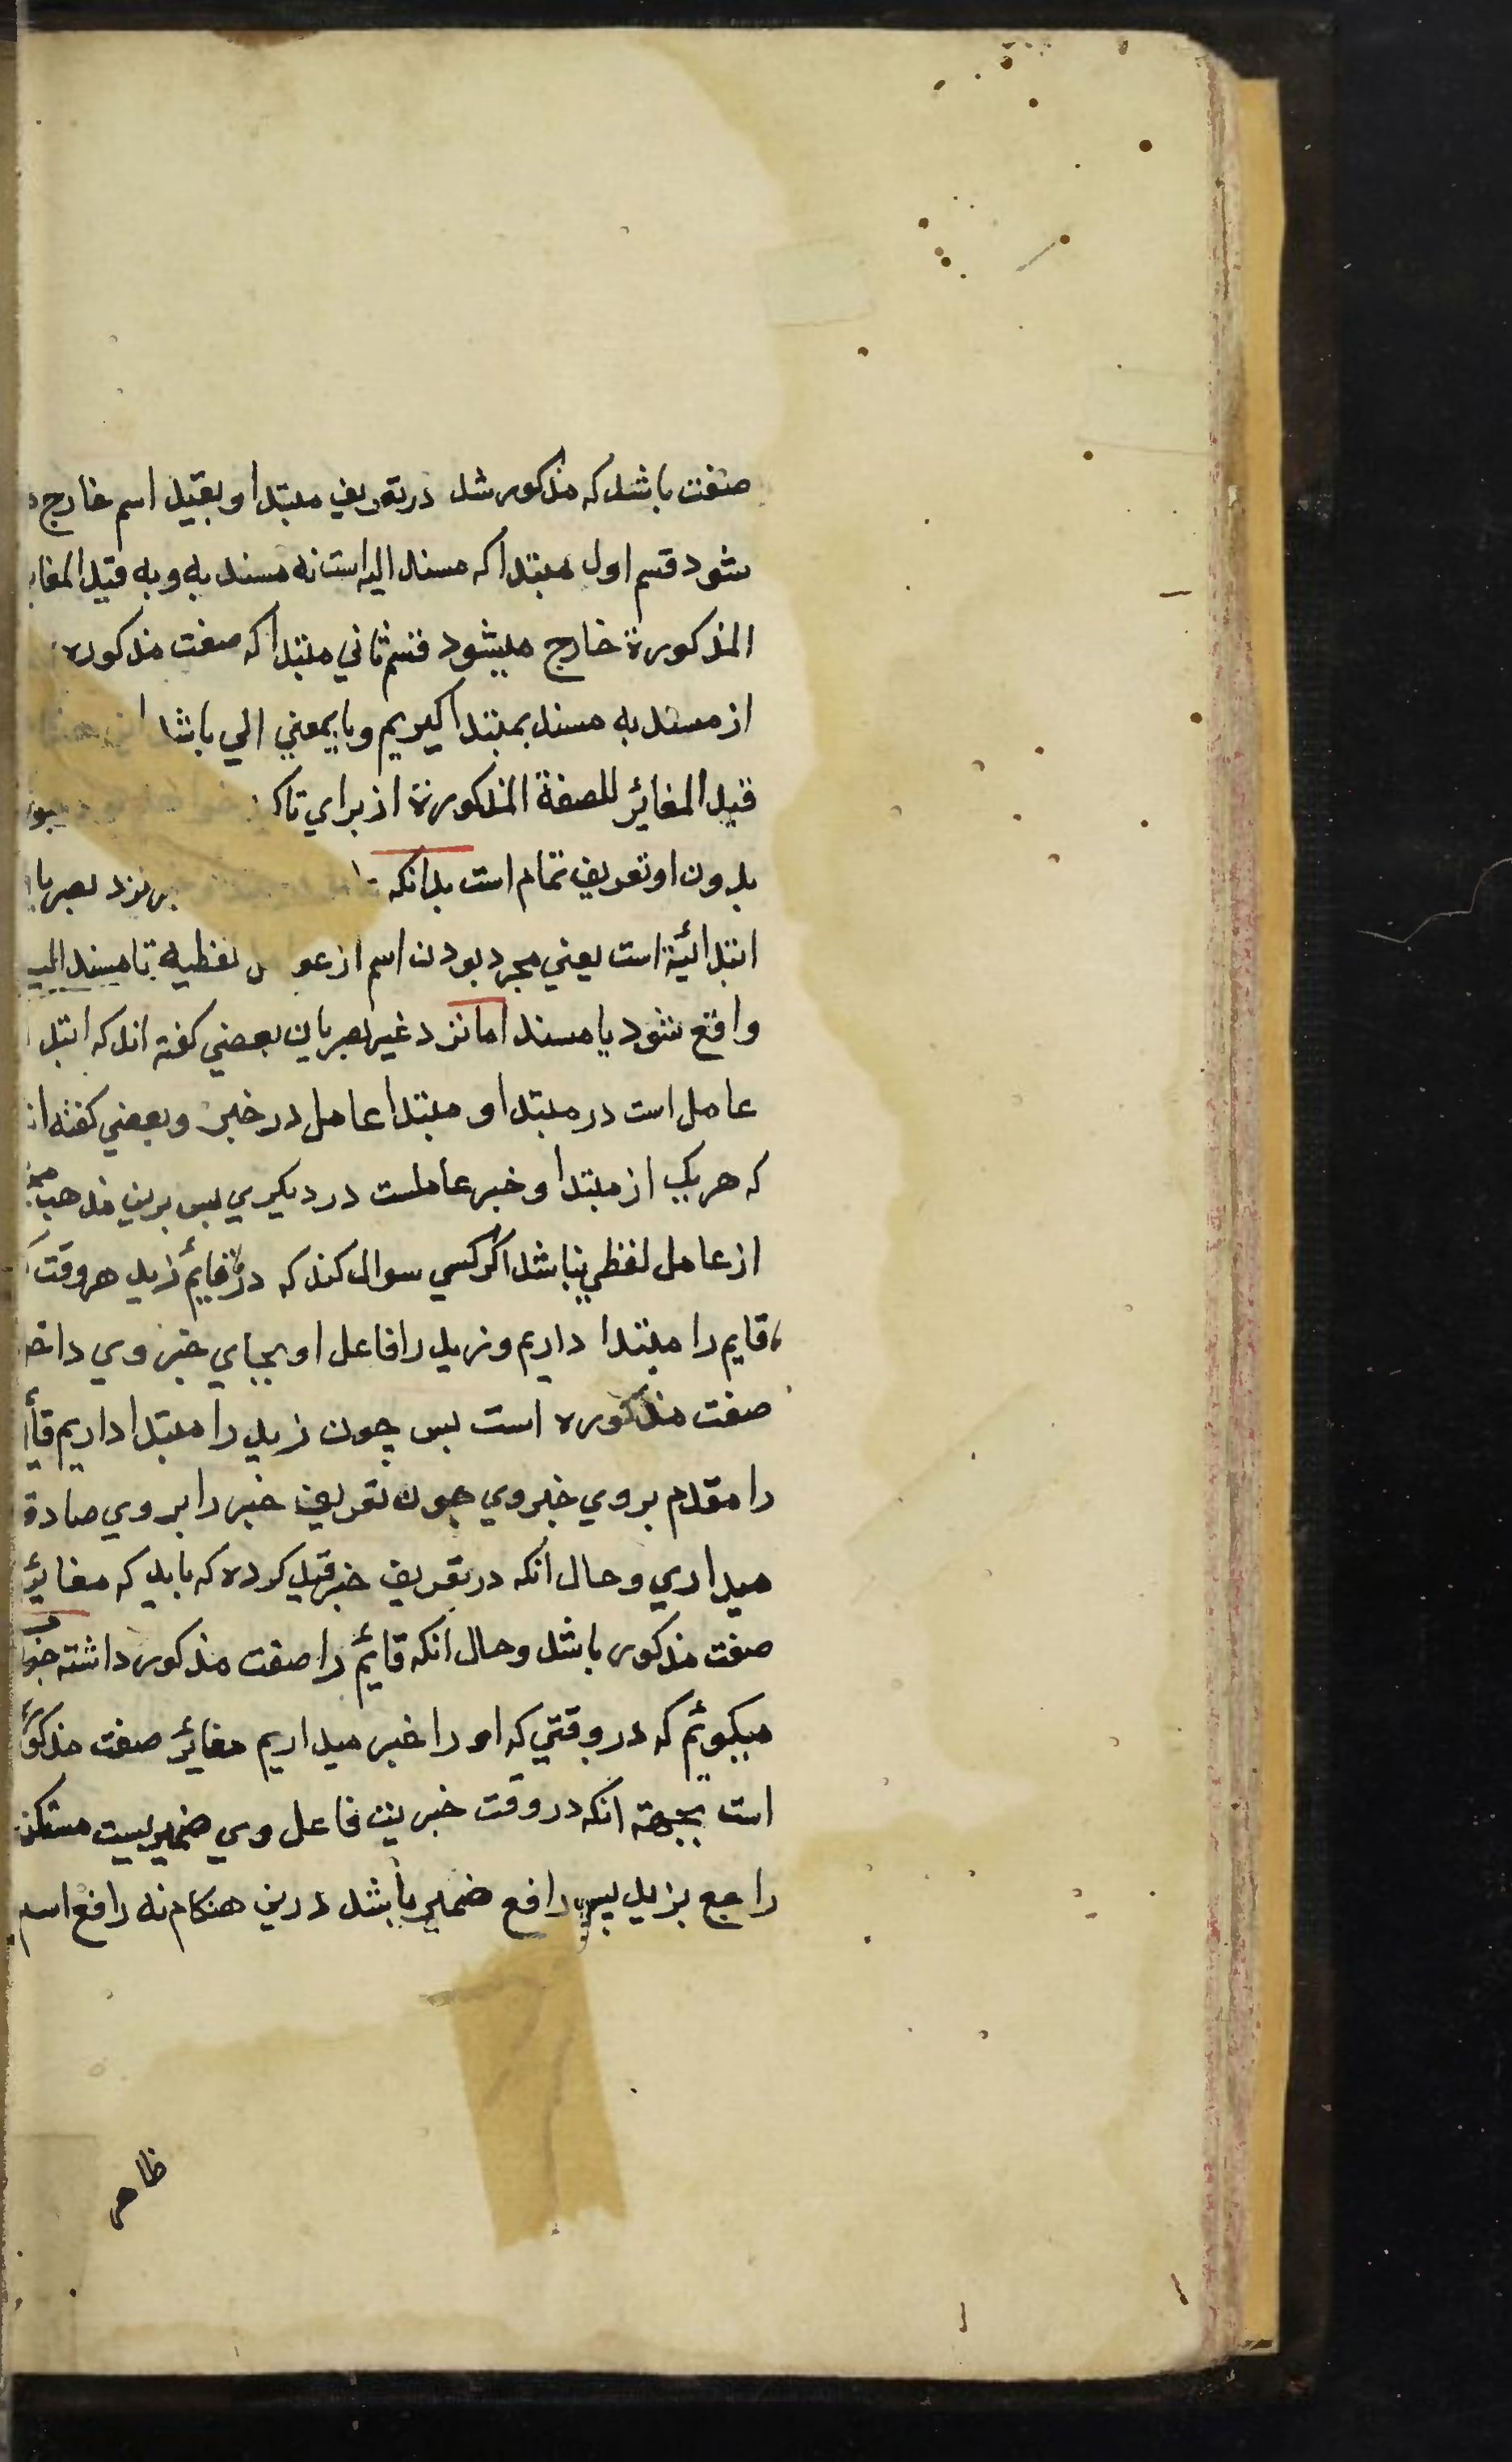 صفت باشد که مذکور شد در تعریف مبتدا و بقید اسم خارج
شود قسم اول مبتدا که مسند الیه است نه مسند به و به قید المغایر
المذکورة خارج میشود قسم ثاني مبتدا که صفت مذکوره
از مسند به مسند بمبتدا کیریم و با بمعني الي باشد
قید المغائر للصفة المذکورة از براي تاکید
بدون او تعریف تمام است بدانکه نزد بصریا
ابتدائیة است یعني مجرد بودن اسم از عوامل لفظیه تا مسند الیه
واقع شود یا مسند اما نزد غیر بصریان بعضي کفته اند که ابتدا
عامل است در مبتدا و مبتدا عامل در خبر و بعضي کفته اند
که هریک از مبتدا و خبر عاملست در دیکری پس برین مذهب
از عامل لفظي نباشد اکر کسي سوال کند که در قایم زید هر وقت
قایم را مبتدا داریم و زید را فاعل او بجاي خبر وي داخل
صفت مذکوره است پس چون زید را مبتدا داریم قا
را مقدم بر وي خبر وي چون تعریف خبر را بر وي صادق
میداري و حال انکه در تعریف خبر قید کرده که باید که مغایر
صفت مذکور باشد و حال انکه قایم را صفت مذکور داشته جو
میکوئم که در وقتي که او را خبر میداریم مغائر صفت مذکور
است بجهة انکه در وقت خبریت فاعل وي ضمیریست مستکن
راجع بزید پس رافع ضمیر باشد درین هنکام نه رافع اسم
ظاهر